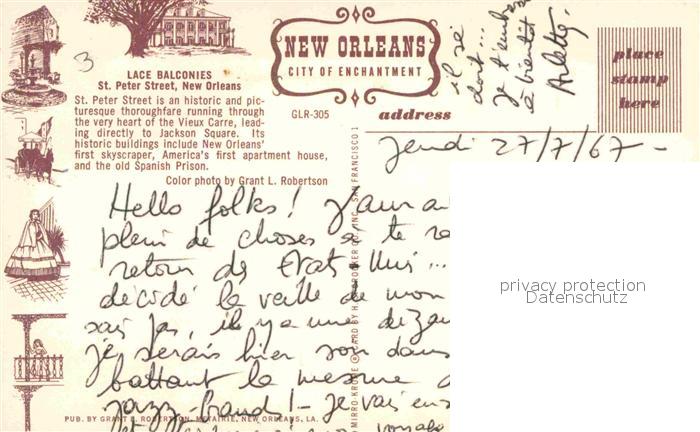 3
LACE BALCONIES
St. Peter Street, New Orleans
St. Peter Street is an historic and pic-
turesque thoroughfare running through
the very heart of the Vieux Carre, lead-
ing directly to Jackson Square. Its
historic buildings include New Orleans'
first skyscraper, America's first apartment house,
and the old Spanish Prison.
Color photo by Grant L. Robertson
NEW ORLEANS
CITY OF ENCHANTMENT
GLR-305
address
place
stamp
here
il se
doit...
je t'
à bientôt
Arlette.
Jeudi 27/7/67 -
Hello folks! J'aur
plein de choses à te
retour des Etats-Unis...
décidé la veille de mon
sais pas, il y a une
je serais hier soir dans
battant la mesure
jazz-band! - je vais
et
privacy protection
Datenschutz
MIRRO-KROME ® CARD BY H. S. CROCKER CO., INC. SAN FRANCISCO 1
PUB. BY GRANT L. ROBERTSON, METAIRIE, NEW ORLEANS, LA.